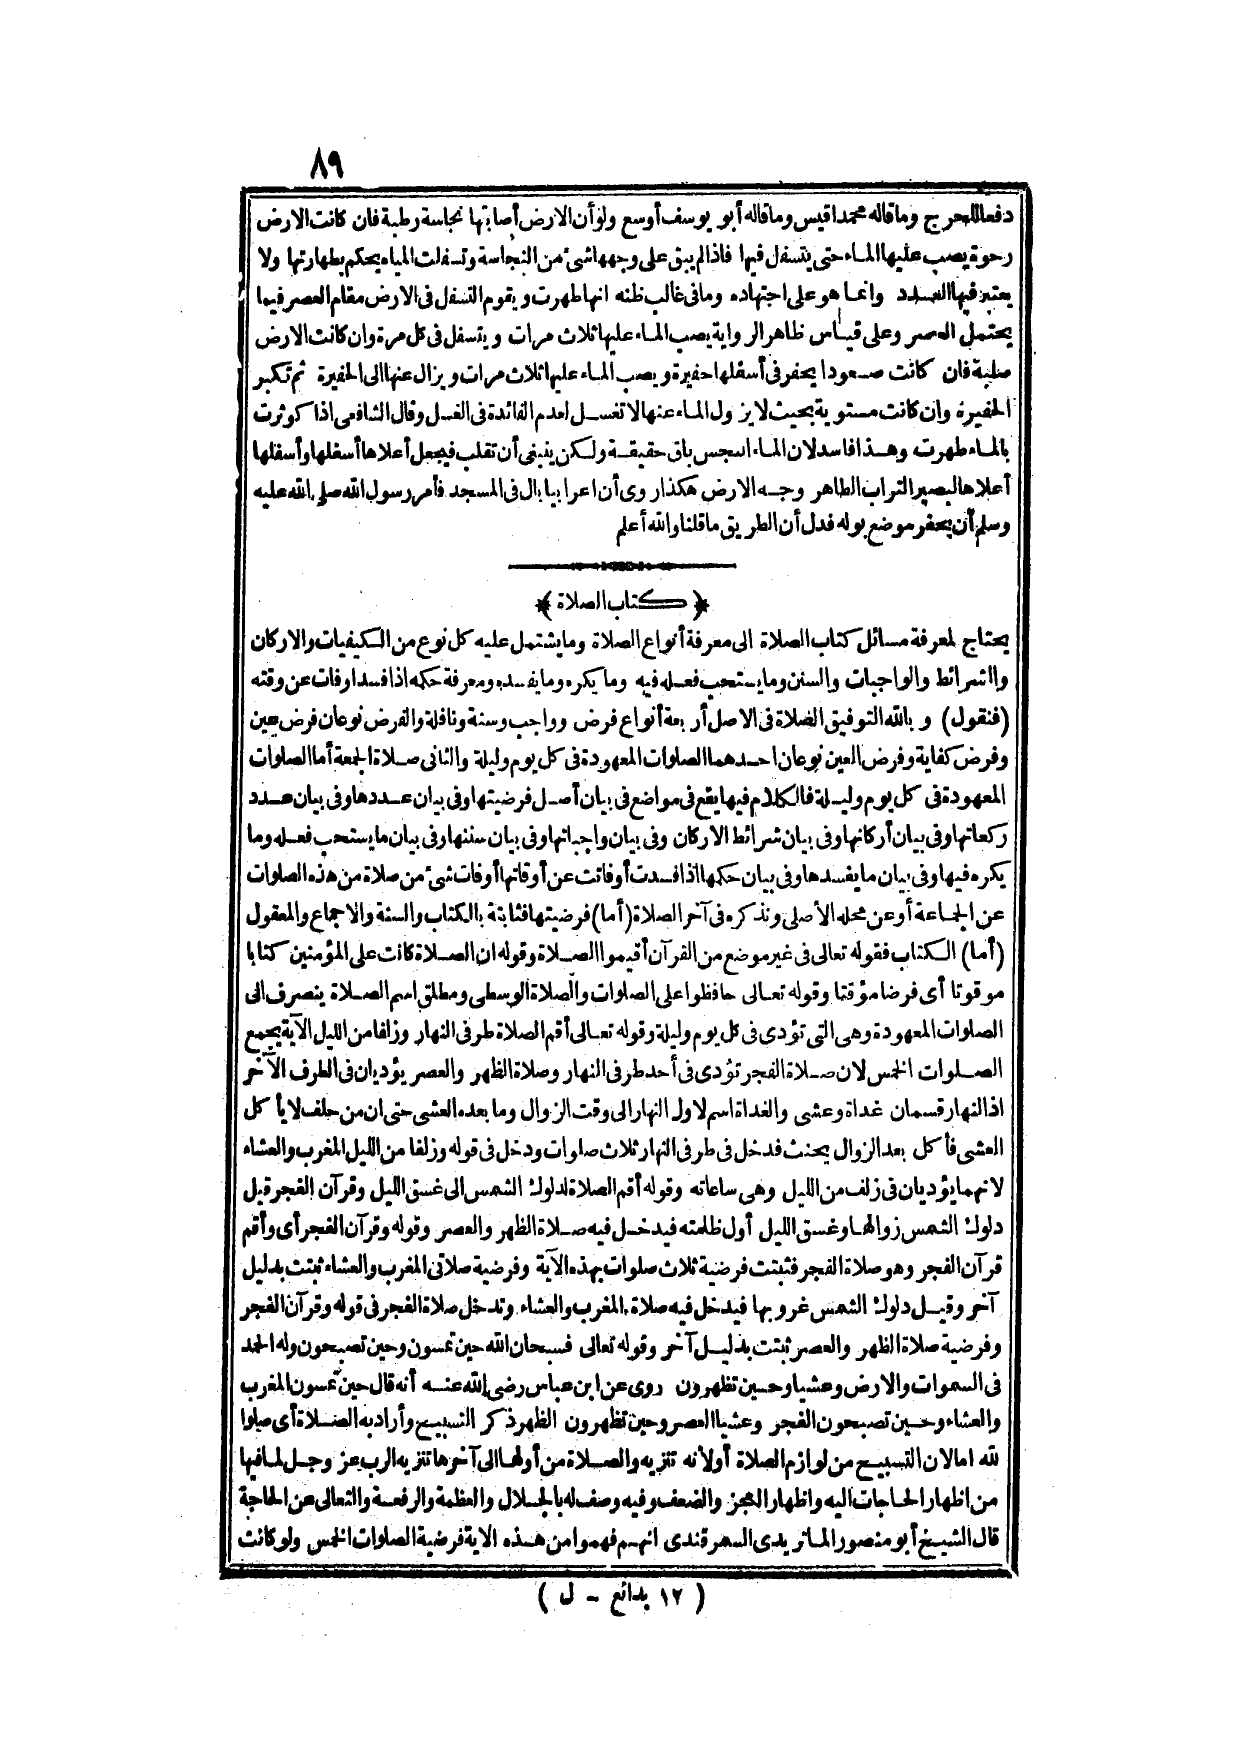 ٨٩
دفعا للحرج وما قاله محمد اقيس وما قاله أبو يوسف أوسع ولو أن الارض أصابتها نجاسة رطبة فان كانت الارض
رخوة يصب عليها الماء حتى يتسفل فيها فاذا لم يبق على وجهها شئ من النجاسة وتسفلت المياه يحكم بطهارتها ولا
يعتبر فيها العدد وانما هو على اجتهاده وما فى غالب ظنه انها طهرت ويقوم التسفل فى الارض مقام العصر فيما
يحتمل العصر وعلى قياس ظاهر الرواية يصب الماء عليها ثلاث مرات ويتسفل فى كل مرة وان كانت الارض
صلبة فان كانت صعودا يحفر فى أسفلها حفيرة ويصب الماء عليها ثلاث مرات ويزال عنها الى الحفيرة ثم تكبر
الحفيرة وان كانت مستوية بحيث لا يزول الماء عنها لا تغسل لعدم الفائدة فى الغسل وقال الشافعى اذا كوثرت
بالماء طهرت وهذا فاسد لان الماء النجس باق حقيقة ولكن ينبغى أن تقلب فيجعل أعلاها أسفلها وأسفلها
أعلاها ليصير التراب الطاهر وجه الارض هكذا روى أن اعرابيا بال فى المسجد فأمر رسول الله صلى الله عليه
وسلم أن يحفر موضع بوله فدل أن الطريق ما قلنا والله أعلم
﴿كتاب الصلاة﴾
يحتاج لمعرفة مسائل كتاب الصلاة الى معرفة أنواع الصلاة وما يشتمل عليه كل نوع من الكيفيات والاركان
والشرائط والواجبات والسنن وما يستحب فعله فيه وما يكره وما يفسده ومعرفة حكمه اذا فسد او فات عن وقته
(فنقول) وبالله التوفيق الصلاة فى الاصل أربعة أنواع فرض وواجب وسنة ونافلة والفرض نوعان فرض عين
وفرض كفاية وفرض العين نوعان احدهما الصلوات المعهودة فى كل يوم وليلة والثانى صلاة الجمعة أما الصلوات
المعهودة فى كل يوم وليلة فالكلام فيها يقع فى مواضع فى بيان أصل فرضيتها وفى بيان عددها وفى بيان عدد
ركعاتها وفى بيان أركانها وفى بيان شرائط الاركان وفى بيان واجباتها وفى بيان سننها وفى بيان ما يستحب فعله وما
يكره فيها وفى بيان ما يفسدها وفى بيان حكمها اذا فسدت أو فاتت عن أوقاتها أو فات شئ من صلاة من هذه الصلوات
عن الجماعة أو عن محله الأصلى ونذكره فى آخر الصلاة (أما) فرضيتها فثابتة بالكتاب والسنة والاجماع والمعقول
(أما) الكتاب فقوله تعالى فى غير موضع من القرآن أقيموا الصلاة وقوله ان الصلاة كانت على المؤمنين كتابا
موقوتا أى فرضا مؤقتا وقوله تعالى حافظوا على الصلوات والصلاة الوسطى ومطلق اسم الصلاة ينصرف الى
الصلوات المعهودة وهى التى تؤدى فى كل يوم وليلة وقوله تعالى أقم الصلاة طرفى النهار وزلفا من الليل الآية يجمع
الصلوات الخمس لان صلاة الفجر تؤدى فى أحد طرفى النهار وصلاة الظهر والعصر يؤديان فى الطرف الآخر
اذ النهار قسمان غداة وعشى والغداة اسم لاول النهار الى وقت الزوال وما بعده العشى حتى ان من حلف لا يأكل
العشى فأكل بعد الزوال يحنث فدخل فى طرفى النهار ثلاث صلوات ودخل فى قوله وزلفا من الليل المغرب والعشاء
لانهما يؤديان فى زلف من الليل وهى ساعاته وقوله أقم الصلاة لدلوك الشمس الى غسق الليل وقرآن الفجر قيل
دلوك الشمس زوالها وغسق الليل أول ظلمته فيدخل فيه صلاة الظهر والعصر وقوله وقرآن الفجر أى وأقم
قرآن الفجر وهو صلاة الفجر فثبتت فرضية ثلاث صلوات بهذه الآية وفرضية صلاتى المغرب والعشاء ثبتت بدليل
آخر وقيل دلوك الشمس غروبها فيدخل فيه صلاة المغرب والعشاء وتدخل صلاة الفجر فى قوله وقرآن الفجر
وفرضية صلاة الظهر والعصر ثبتت بدليل آخر وقوله تعالى فسبحان الله حين تمسون وحين تصبحون وله الحمد
فى السموات والارض وعشيا وحين تظهرون روى عن ابن عباس رضى الله عنه أنه قال حين تمسون المغرب
والعشاء وحين تصبحون الفجر وعشيا العصر وحين تظهرون الظهر ذكر التسبيح وأراد به الصلاة أى صلوا
لله اما لان التسبيح من لوازم الصلاة أو لانه تنزيه والصلاة من أولها الى آخرها تنزيه الرب عز وجل لما فيها
من اظهار الحاجات اليه واظهار العجز والضعف وفيه وصف له بالجلال والعظمة والرفعة والتعالى عن الحاجة
قال الشيخ أبو منصور الماتريدى السمرقندى انهم فهموا من هذه الاية فرضية الصلوات الخمس ولو كانت
(١٢ بدائع - ل)